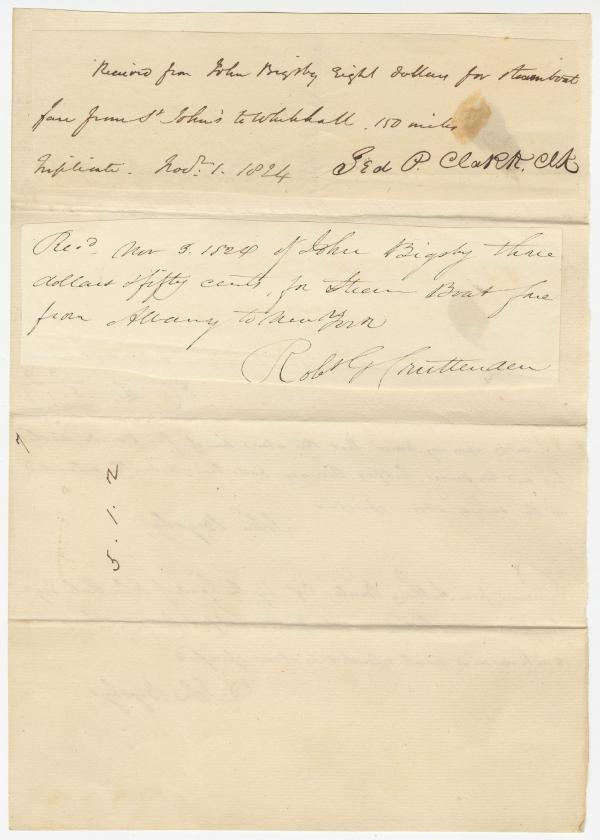 Received from John Bigsby Eight dollars for steamboat
fare from St John's to Whitehall. 150 miles
Triplicate. Novr. 1. 1824 Ged P. Clark. Clk
Recd Nov 3. 1824 of John Bigsby three
dollars & fifty cents, for Steam Boat fare
from Albany to New York
Robt G Cruttenden
7
5.1.2